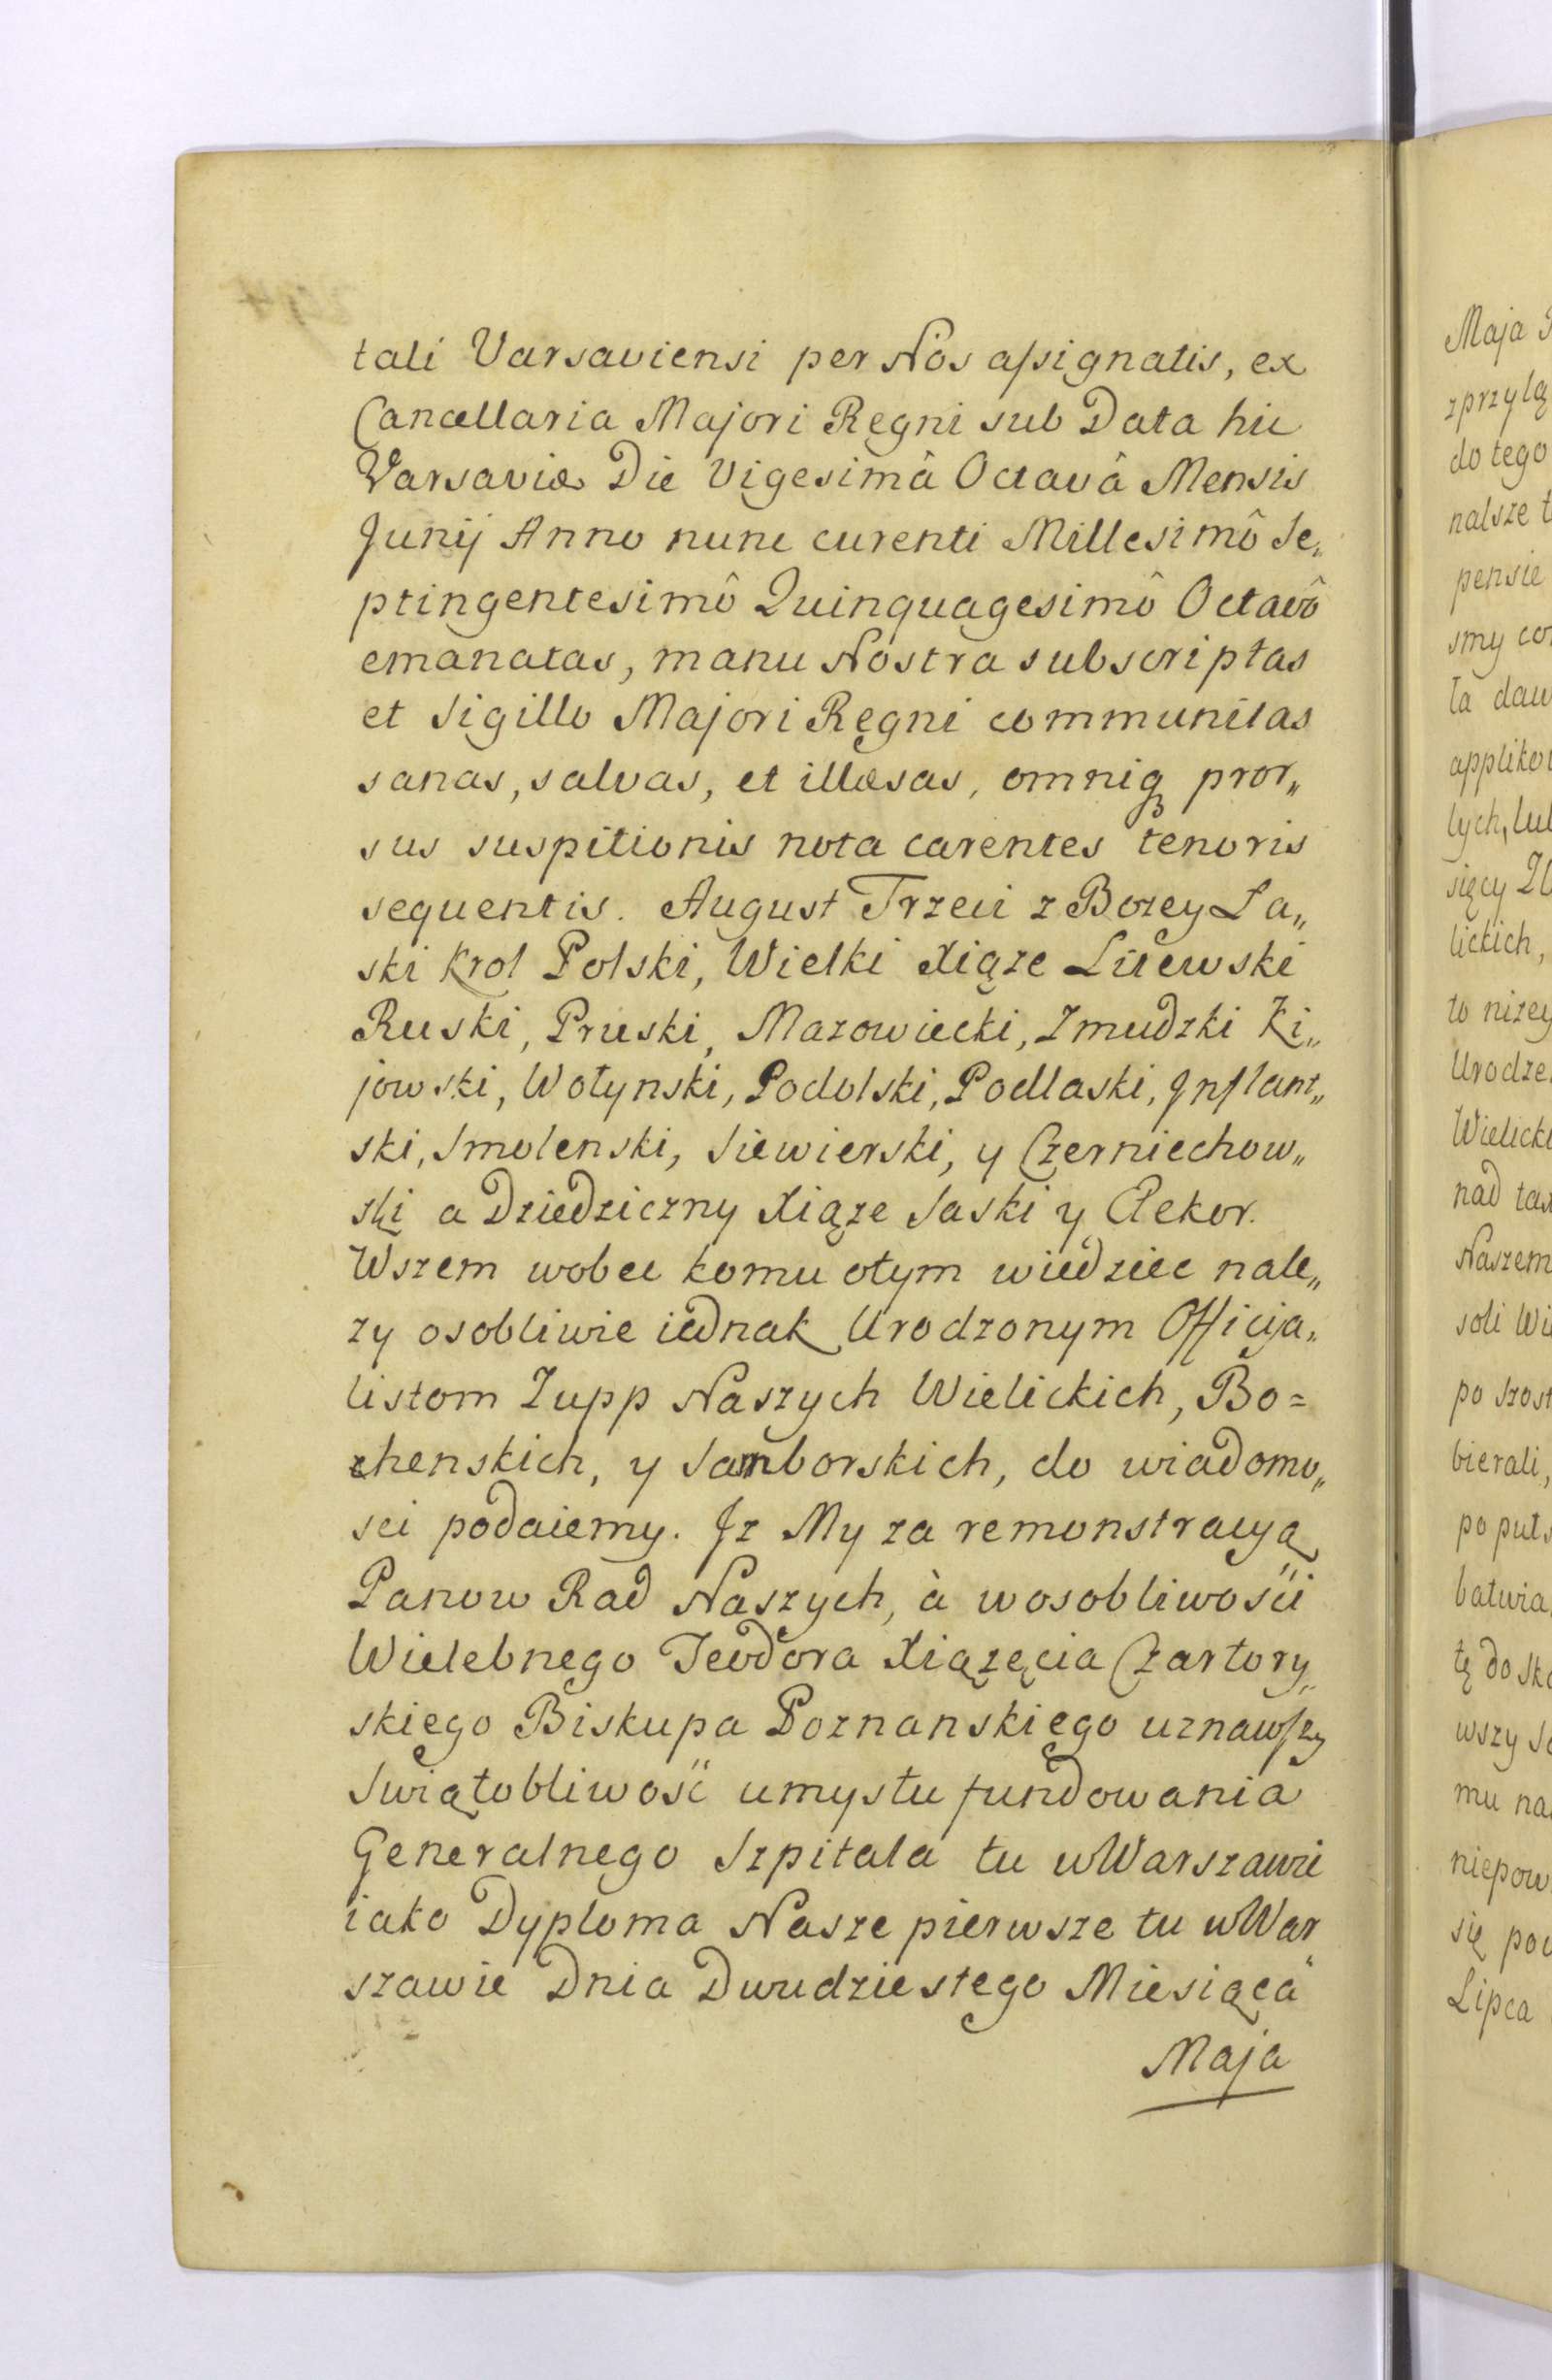 tali Varsaviensi per Nos assignatis, ex
Cancellaria Majori Regni sub Data hic
Varsaviæ Die Vigesimâ Octavâ Mensis
Junij Anno nunc curenti Millesimô Se„
ptingentesimô Quinquagesimô Octavô
emanatas, manu Nostra subscriptas
et Sigillo Majori Regni communitas
sanas, salvas, et illæsas, omniq pror„
sus suspitionis nota carentes tenoris
sequentis. August Trzeci z Bozey La„
ski Krol Polski, Wielki Xiąze Litewski
Ruski, Pruski, Mazowiecki, Zmudzki Ki„
jowski, Wołynski, Podolski, Podlaski, Inflant„
ski, Smolenski, Siewierski, y Czerniechow„
ski a Dziedziczny Xiąze Saski y Elektor.
Wszem wobec komu otym wiedziec nale„
zy osobliwie iednak Urodzonym Officija„
listom Zupp Naszych Wielickich, Bo=
chenskich, y Samborskich, do wiadomo„
sci podaiemy. Jz My za remonstracyą
Panow Rad Naszych, à wosobliwości
Wielebnego Teodora Xiązęcia Czartory„
skiego Biskupa Poznanskiego uznawszy
Swiątobliwość umysłu fundowania
Generalnego Szpitala tu wWarszawie
iako Dyploma Nasze pierwsze tu wWar„
szawie Dnia Dwudziestego Miesiąca
Maja
Maja
zprzylą
do tego
nalsze
pensie
smy
ła daw
applikow
lych, lub
sięcy
lickich,
to nizey
Urodze
Wielicki
nad
Naszem
soli Wi
po szost
bierali,
po puł
batwia
tę do
wszy
mu na
niepow
się
Lipca